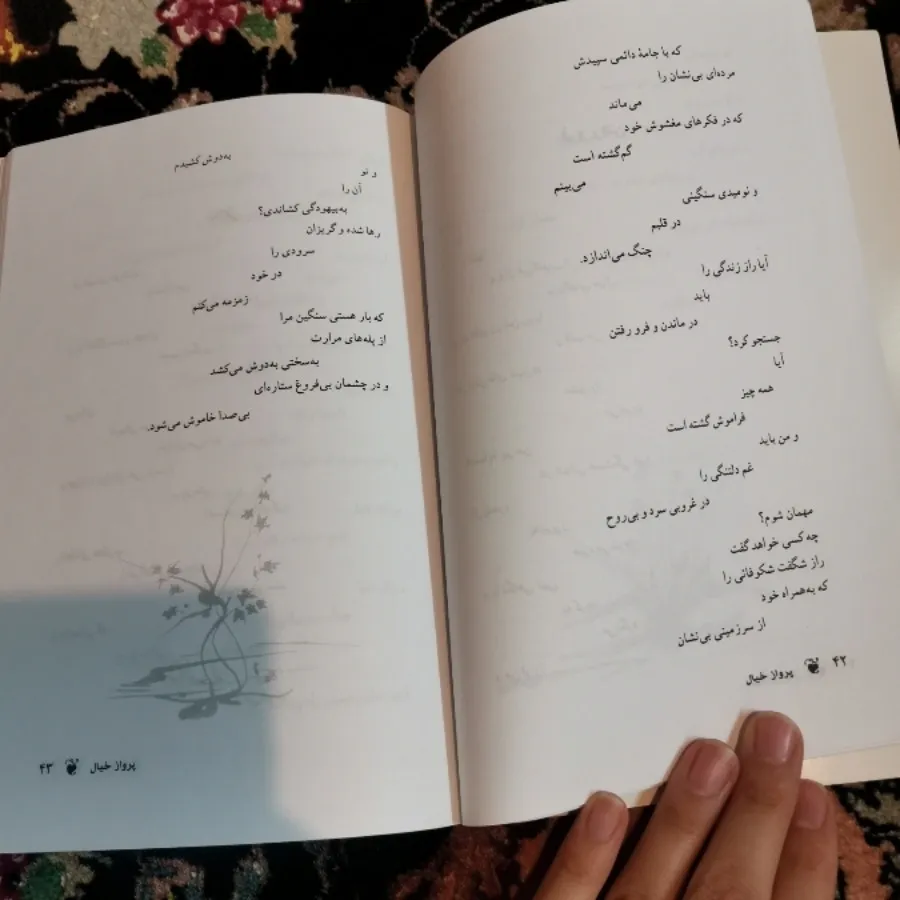 که با جامهٔ دائمی سپیدش
مرده‌ای بی‌نشان را
می‌ماند
که در فکرهای مغشوش خود
گم‌گشته است
می‌بینم
و نومیدی سنگینی
در قلبم
چنگ می‌اندازد.
آیا راز زندگی را
باید
در ماندن و فرو رفتن
جستجو کرد؟
آیا
همه چیز
فراموش گشته است
و من باید
غم دلتنگی را
در غروبی سرد و بی‌روح
مهمان شوم؟
چه کسی خواهد گفت
راز شگفت شکوفائی را
که به‌همراه خود
از سرزمینی بی‌نشان
۴۲ پرواز خیال
به‌دوش کشیدم
و تو
آن را
به‌بیهودگی کشاندی؟
رها شده و گریزان
سرودی را
در خود
زمزمه می‌کنم
که بار هستی سنگین مرا
از پله‌های مرارت
به‌سختی به‌دوش می‌کشد
و در چشمان بی‌فروغ ستاره‌ای
بی‌صدا خاموش می‌شود.
پرواز خیال ۴۳